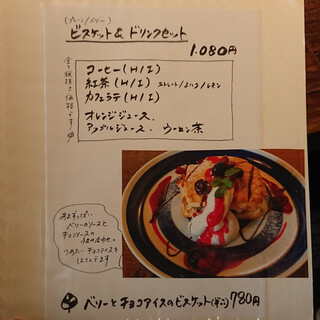 (プレーン/ベリー)
ビスケット& ドリンクセット
1.080円
全て税抜き価格です
コーヒー(H/I)
紅茶(H/I) ストレート/ミルク/レモン
カフェラテ(H/I)
オレンジジュース、
アップルジュース、 ウーロン茶
あまずっぱい
ベリーのソースと
チョコソースの
組み合わせ。
つめたいチョコアイスを
ベリーとチョコアイスのビスケット 780円